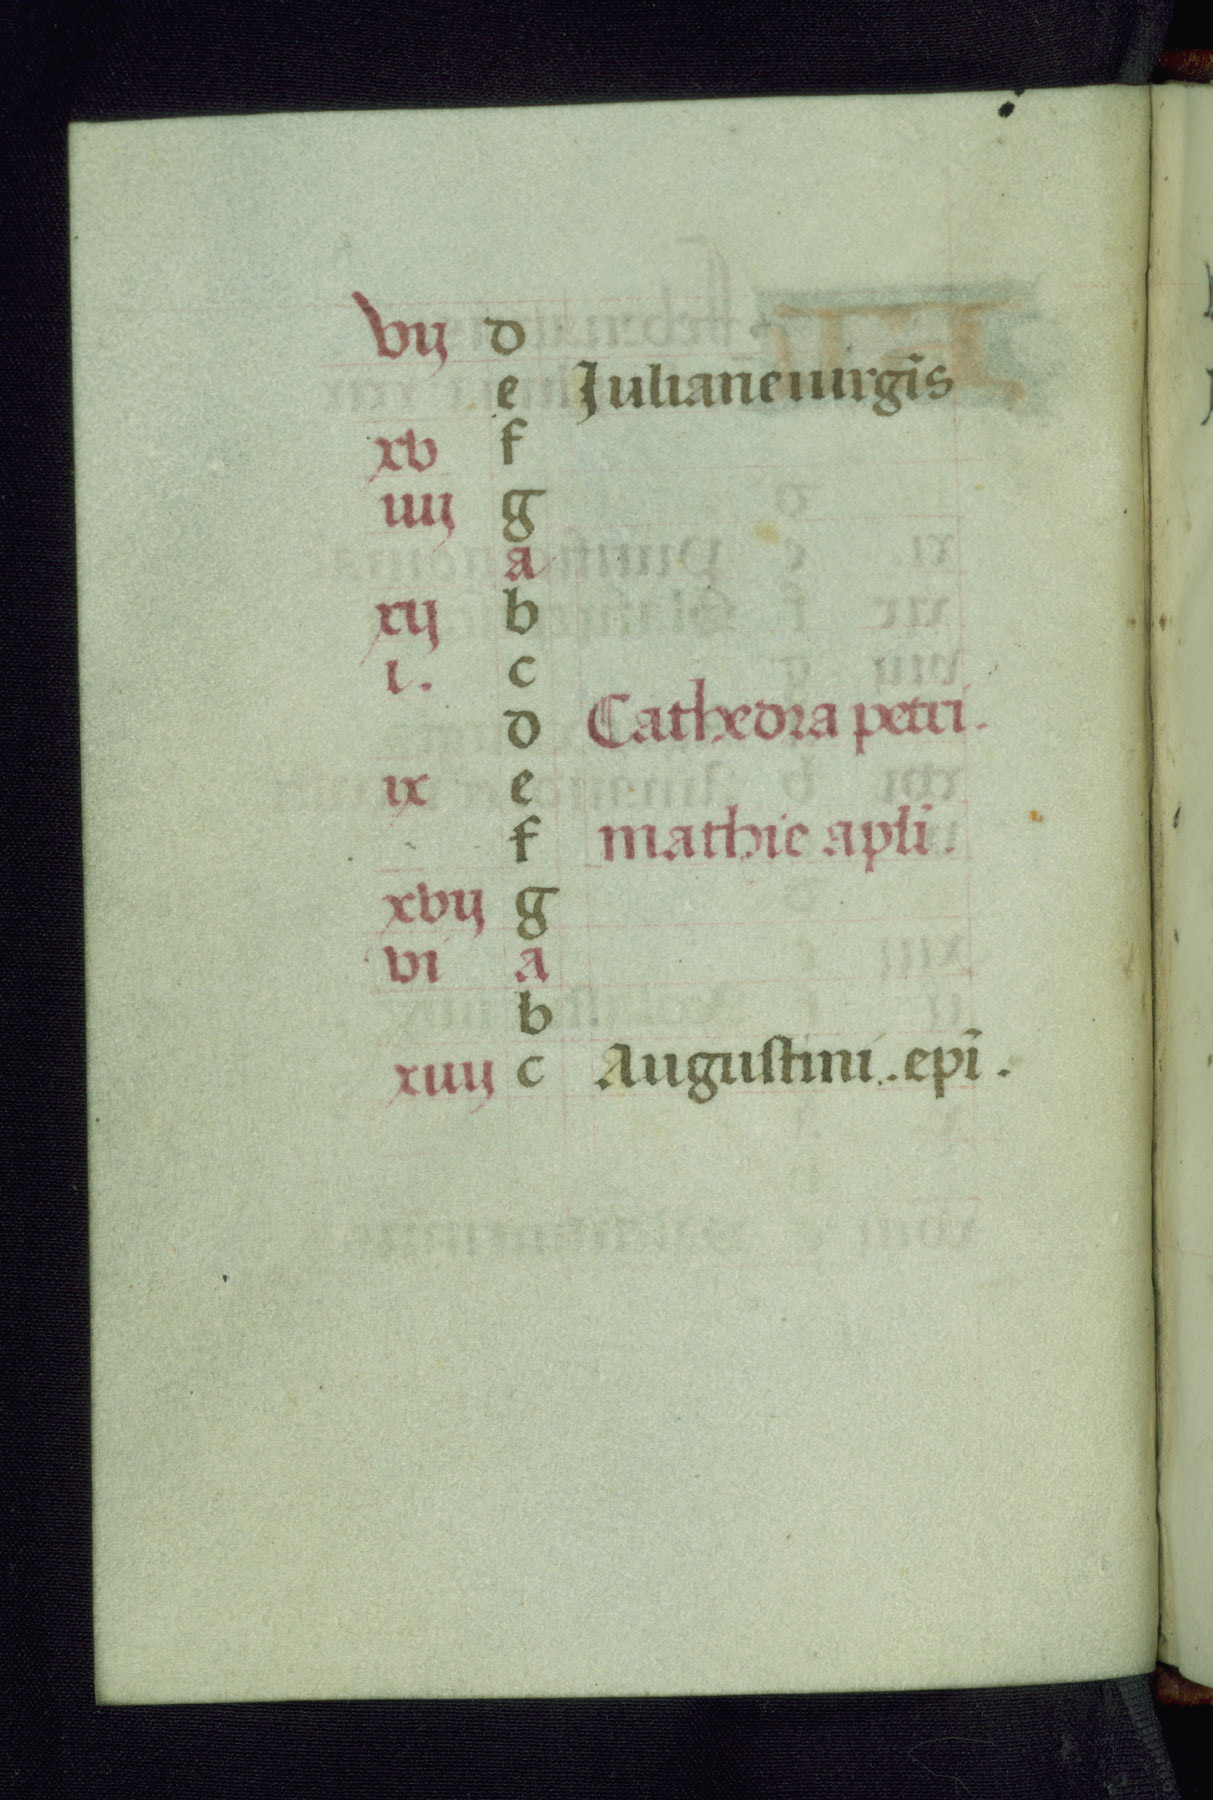 vij d
e Juliane uirgĩs
xv f
iiij g
a
xij b
i. c
d Cathedra petri.
ix e
f mathie apłi.
xvij g
vi a
b
xiiij c Augustini. epĩ.